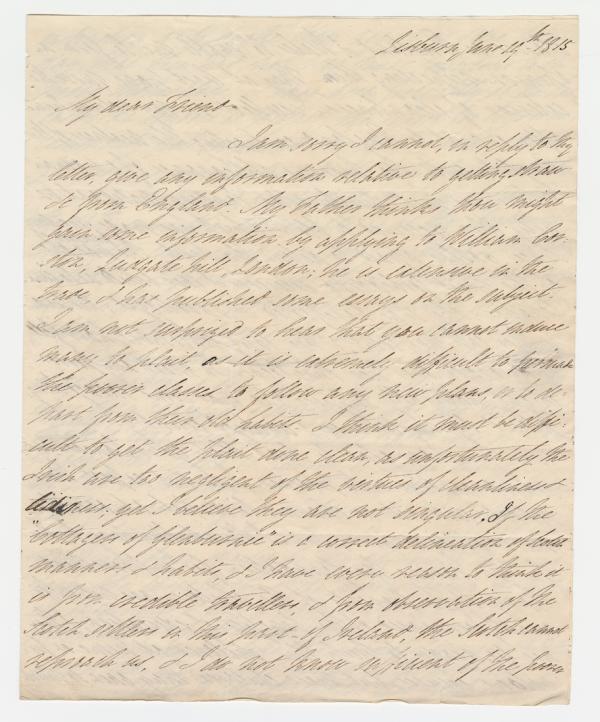 Lisburn June 19th 1815
My dear Friend
I am sorry I cannot, in reply to thy
letter, give any information relative to getting straw
&c from England. My Father thinks thou might
gain some information by applying to William Cor-
ston, Ludgate hill, London; he is extensive in the
trade, & has published some essays on the subject.
I am not surprized to hear that you cannot induce
many to plait, as it is extremely difficult to
the poorer classes to follow any new plans, or to de-
part from their old habits. I think it must be diffi-
cult to get the plait done clean, as unfortunately the
Irish are too negligent of the virtues of cleanliness &
tidiness. yet I believe they are not singular. If the
"Cottagers of Glenburnie" is a correct delineation of Scotch
manners & habits, & I have every reason to think it
is from credible travellers, & from observation of the
Scotch settlers in this part of Ireland, the Scotch cannot
reproach us, & I do not know sufficient of the